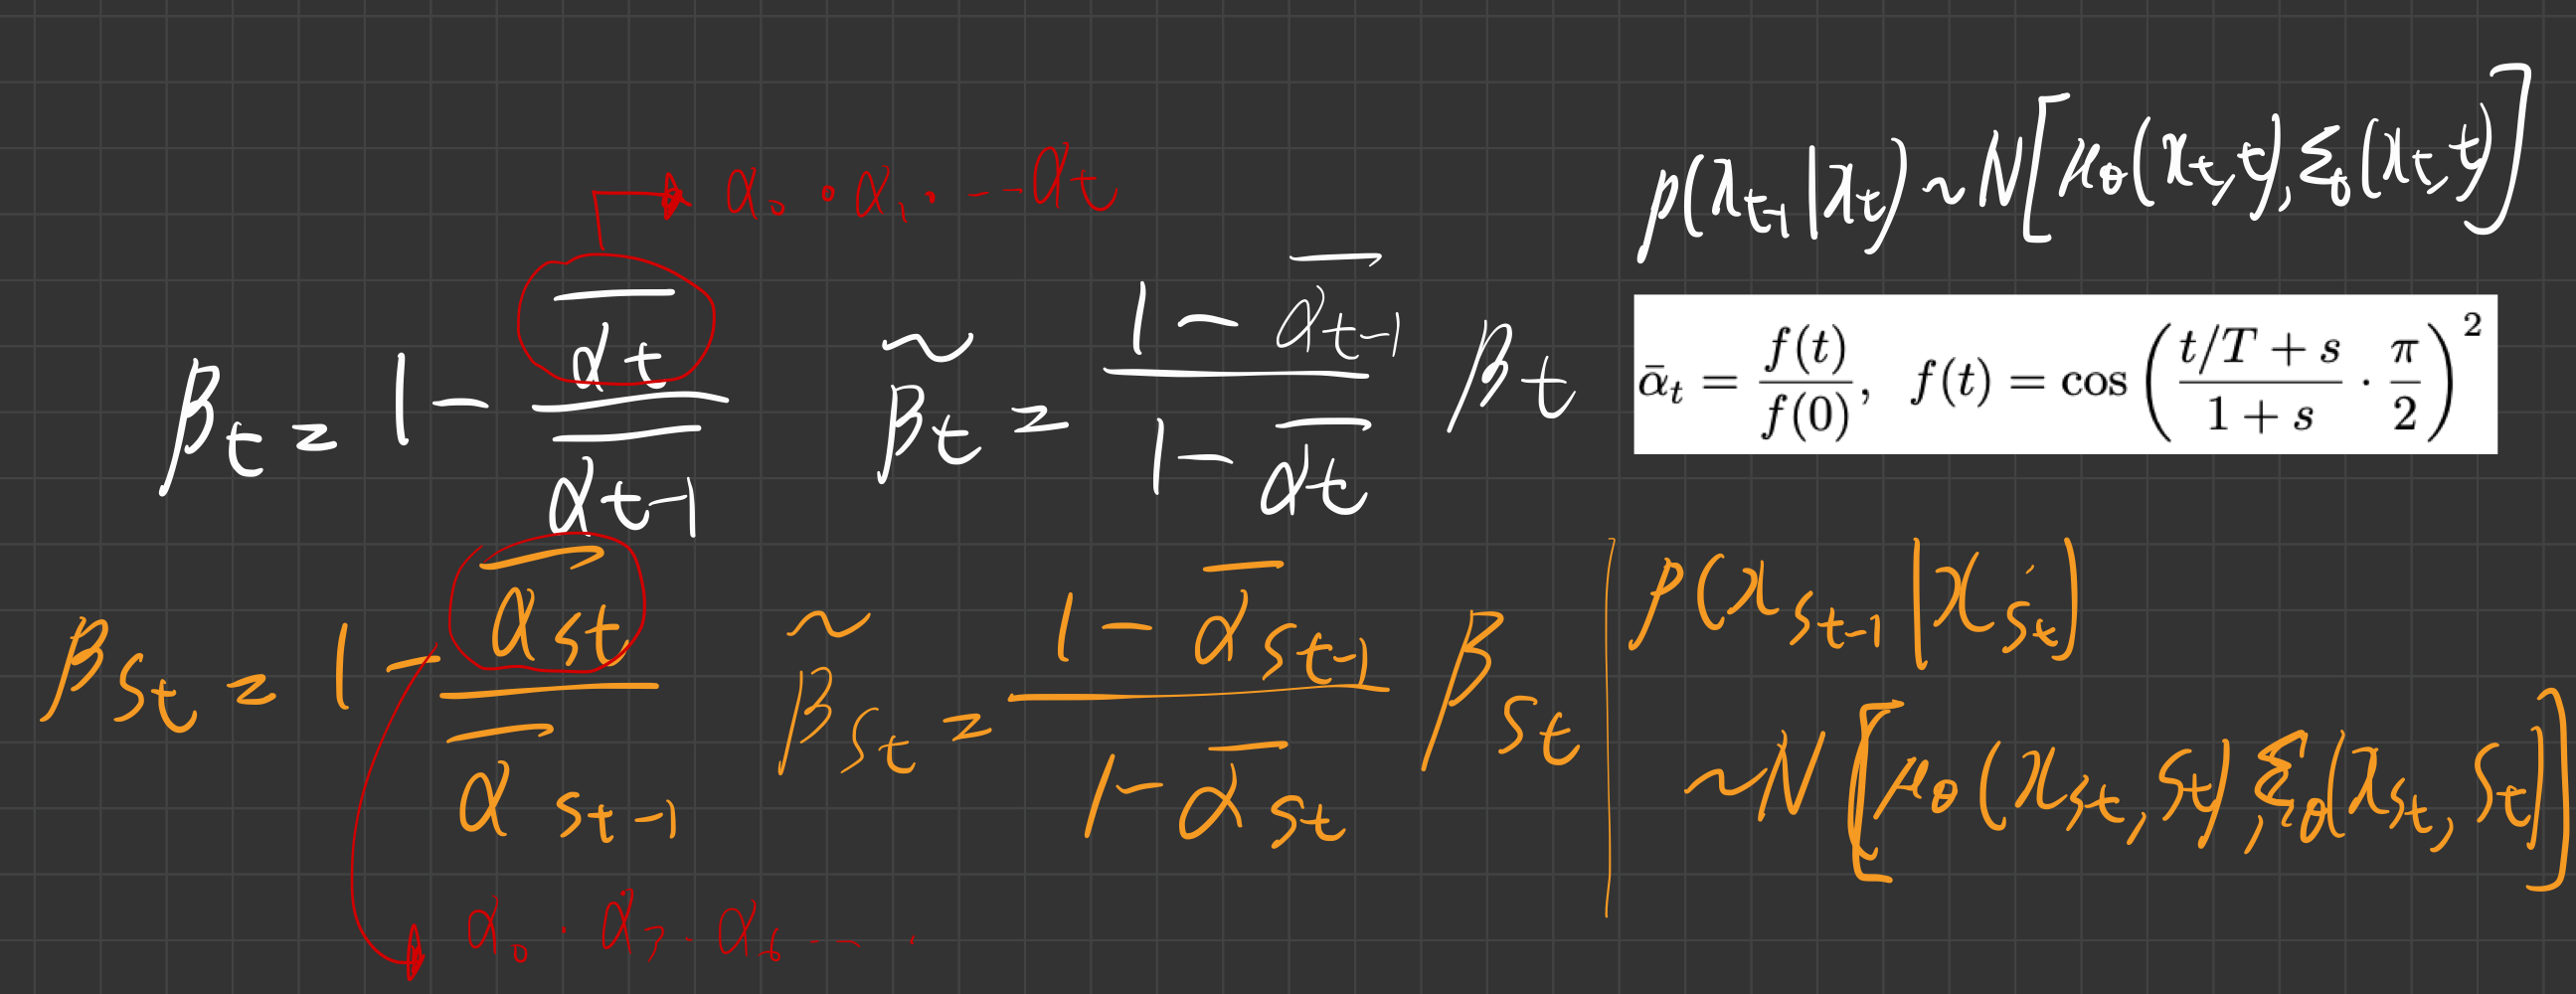 α₀ · α₁ · --- αt
p(x_{t-1}|x_t) ~ N[μ_θ(x_t, t), Σ_θ(x_t, t)]
β_t = 1 - \overline{α_t} / \overline{α_{t-1}}
\tilde{β}_t = (1 - \overline{α_{t-1}}) / (1 - \overline{α_t}) β_t
ᾱ_t = f(t) / f(0), f(t) = cos( (t/T + s) / (1 + s) · π/2 )²
β_{S_t} = 1 - \overline{α_{S_t}} / \overline{α_{S_{t-1}}}
\tilde{β}_{S_t} = (1 - \overline{α}_{S_{t-1}}) / (1 - \overline{α}_{S_t}) β_{S_t}
p(x_{S_{t-1}}|x_{S_t})
~ N[μ_θ(x_{S_t}, S_t), Σ_θ(x_{S_t}, S_t)]
α₀ · α